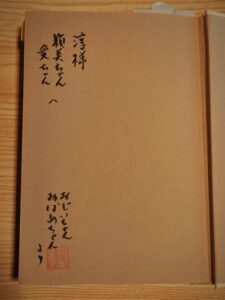 淳様
穎美ちゃん
愛ちゃん
へ
おじいちゃん
おばあちゃん
より